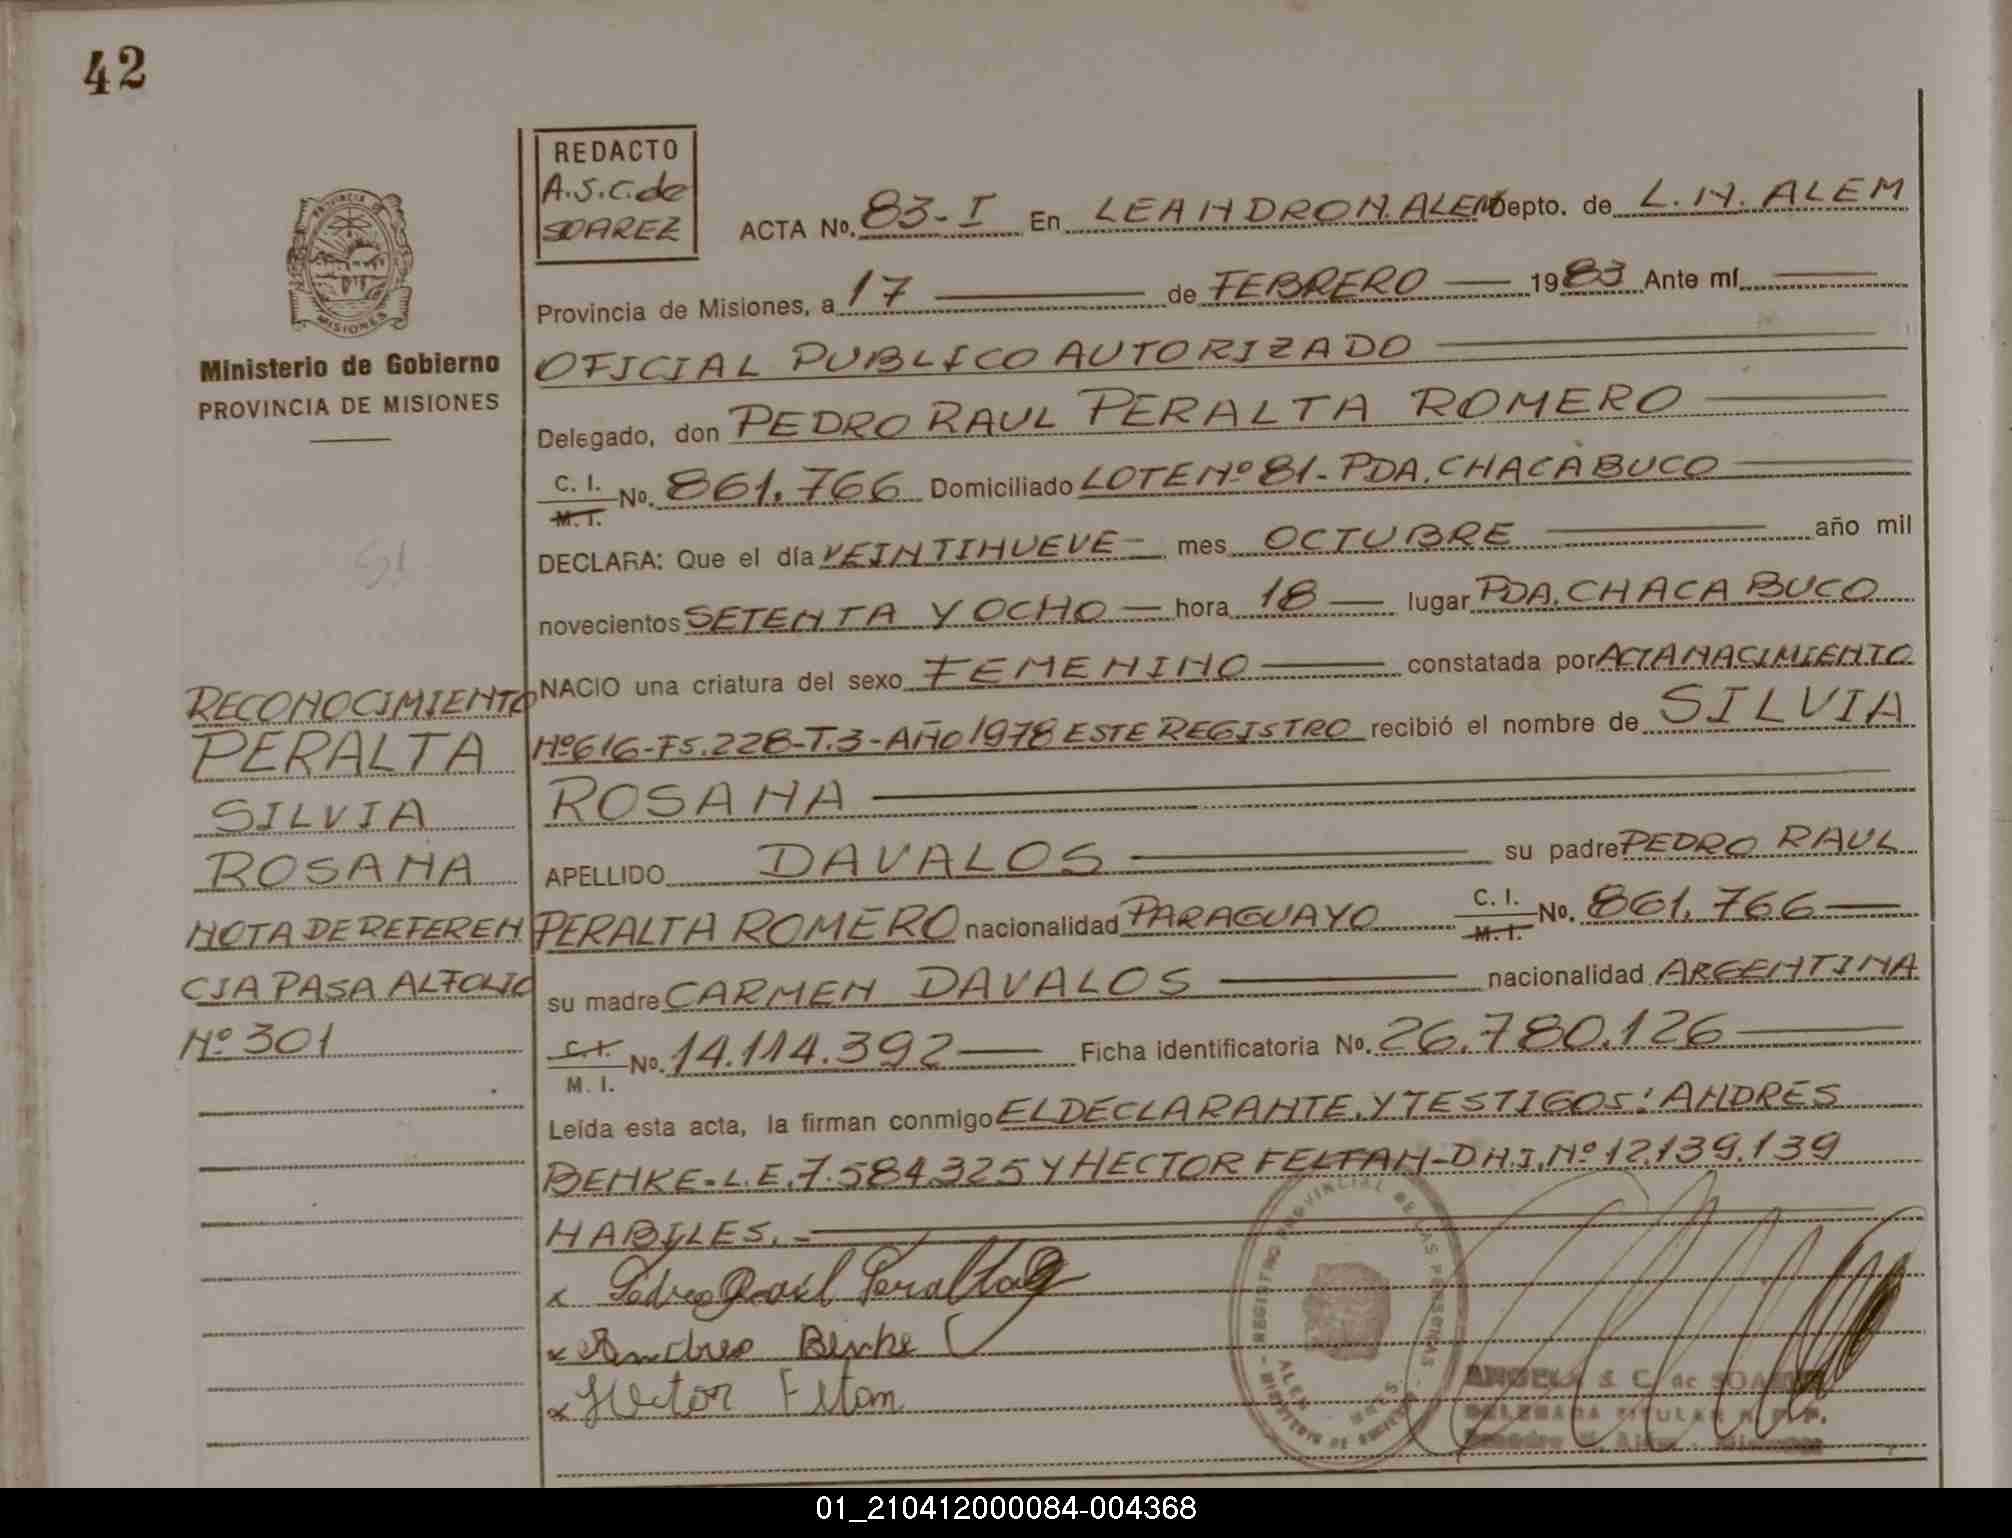 42
REDACTO
A.S.C. de
SOAREZ
ACTA No. 83-I En LEANDRO N. ALEM Depto. de L.N. ALEM
Provincia de Misiones, a 17 de FEBRERO 1983 Ante mí
OFICIAL PUBLICO AUTORIZADO
Delegado, don PEDRO RAUL PERALTA ROMERO
C. I.
M. I. No. 861.766 Domiciliado LOTE Nº 81-PDA. CHACABUCO
DECLARA: Que el día VEINTINUEVE mes OCTUBRE año mil
novecientos SETENTA Y OCHO hora 18 lugar PDA. CHACABUCO
NACIO una criatura del sexo FEMENINO constatada por ACTA NACIMIENTO
Nº616-FS.228-T.3-AÑO 1978 ESTE REGISTRO recibió el nombre de SILVIA
ROSANA
APELLIDO DAVALOS su padre PEDRO RAUL
PERALTA ROMERO nacionalidad PARAGUAYO C. I.
M. I. No. 861.766
su madre CARMEN DAVALOS nacionalidad ARGENTINA
C. I.
M. I. No. 14.114.392 Ficha identificatoria No. 26.780.126
Leída esta acta, la firman conmigo EL DECLARANTE, Y TESTIGOS: ANDRES
BENKE-L.E. 7.584.325 Y HECTOR FELTAN-D.N.I. Nº 12.139.139
HABILES.-
x Pedro Raúl Peralta
x Andres Benke
x Hector Feltan
PROVINCIA DE
MISIONES
Ministerio de Gobierno
PROVINCIA DE MISIONES
SI
RECONOCIMIENTO
PERALTA
SILVIA
ROSANA
NOTA DE REFEREN
CIA PASA AL FOLIO
Nº 301
REGISTRO PROVINCIAL DE LAS PERSONAS
ALEM
MNES
ANGELA S. C. de SOAREZ
DELEGADA TITULAR R.P.P.
Leandro N. Alem - Misiones
01_210412000084-004368